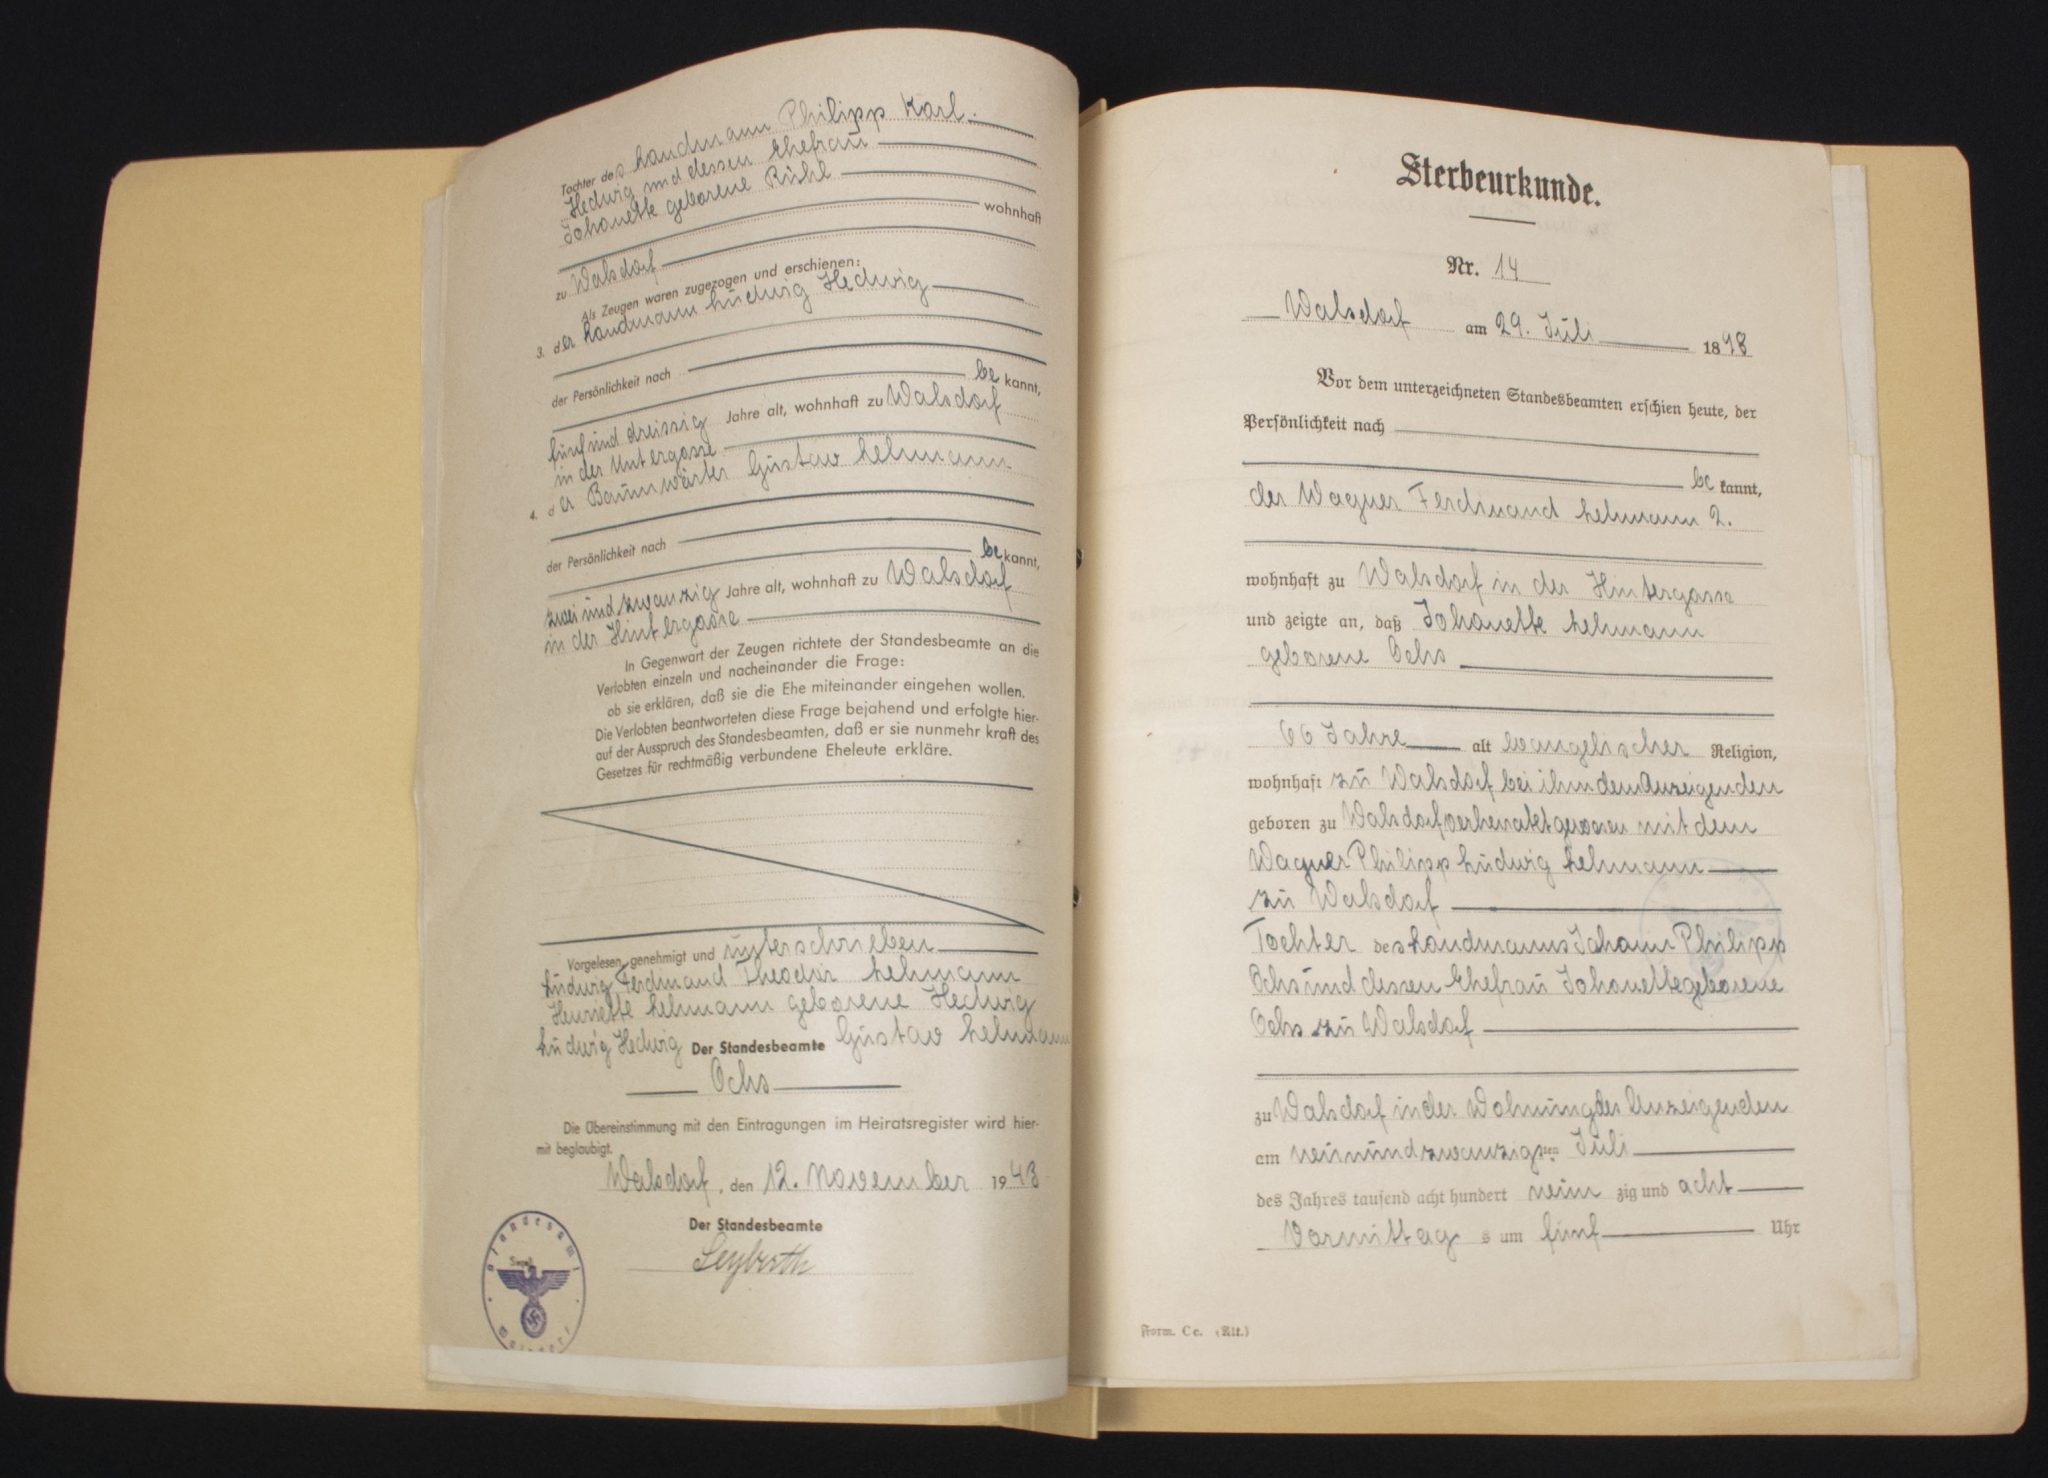 Tochter des Landmann Philipp Karl
Hedwig und dessen Ehefrau
Johanette geborene Rühl
wohnhaft
zu Walsdorf
Als Zeugen waren zugezogen und erschienen:
3. der Landmann Ludwig Hedwig
der Persönlichkeit nach
be kannt,
fünfunddreissig Jahre alt, wohnhaft zu Walsdorf
in der Untergasse
4. der Baumwärter Gustav Lehmann
der Persönlichkeit nach
be kannt,
zweiundzwanzig Jahre alt, wohnhaft zu Walsdorf
in der Hintergasse
In Gegenwart der Zeugen richtete der Standesbeamte an die
Verlobten einzeln und nacheinander die Frage:
ob sie erklären, daß sie die Ehe miteinander eingehen wollen.
Die Verlobten beantworteten diese Frage bejahend und erfolgte hier-
auf der Ausspruch des Standesbeamten, daß er sie nunmehr kraft des
Gesetzes für rechtmäßig verbundene Eheleute erkläre.
Vorgelesen, genehmigt und unterschrieben
Ludwig Ferdinand Theodor Lehmann
Henriette Lehmann geborene Hedwig
Ludwig Hedwig Der Standesbeamte Gustav Lehmann
Ochs
Die Übereinstimmung mit den Eintragungen im Heiratsregister wird hier-
mit beglaubigt.
Walsdorf, den 12. November 1943
Der Standesbeamte
Seyberth
Standesamt
Siegel
Sterbeurkunde.
Nr. 14
Walsdorf am 29. Juli 1898
Vor dem unterzeichneten Standesbeamten erschien heute, der
Persönlichkeit nach
be kannt,
der Wagner Ferdinand Lehmann 2.
wohnhaft zu Walsdorf in der Hintergasse
und zeigte an, daß Johanette Lehmann
geborene Ochs
66 Jahre alt evangelischer Religion,
wohnhaft zu Walsdorf bei ihm dem Anzeigenden
geboren zu Walsdorf verheiratet gewesen mit dem
Wagner Philipp Ludwig Lehmann
zu Walsdorf
Tochter des Landmanns Johann Philipp
Ochs und dessen Ehefrau Johanette geborene
Ochs zu Walsdorf
zu Walsdorf in der Wohnung des Anzeigenden
am neunundzwanzigsten Juli
des Jahres tausend acht hundert neun zig und acht
Vormittag s um fünf Uhr
Form. Cc. (Alt.)